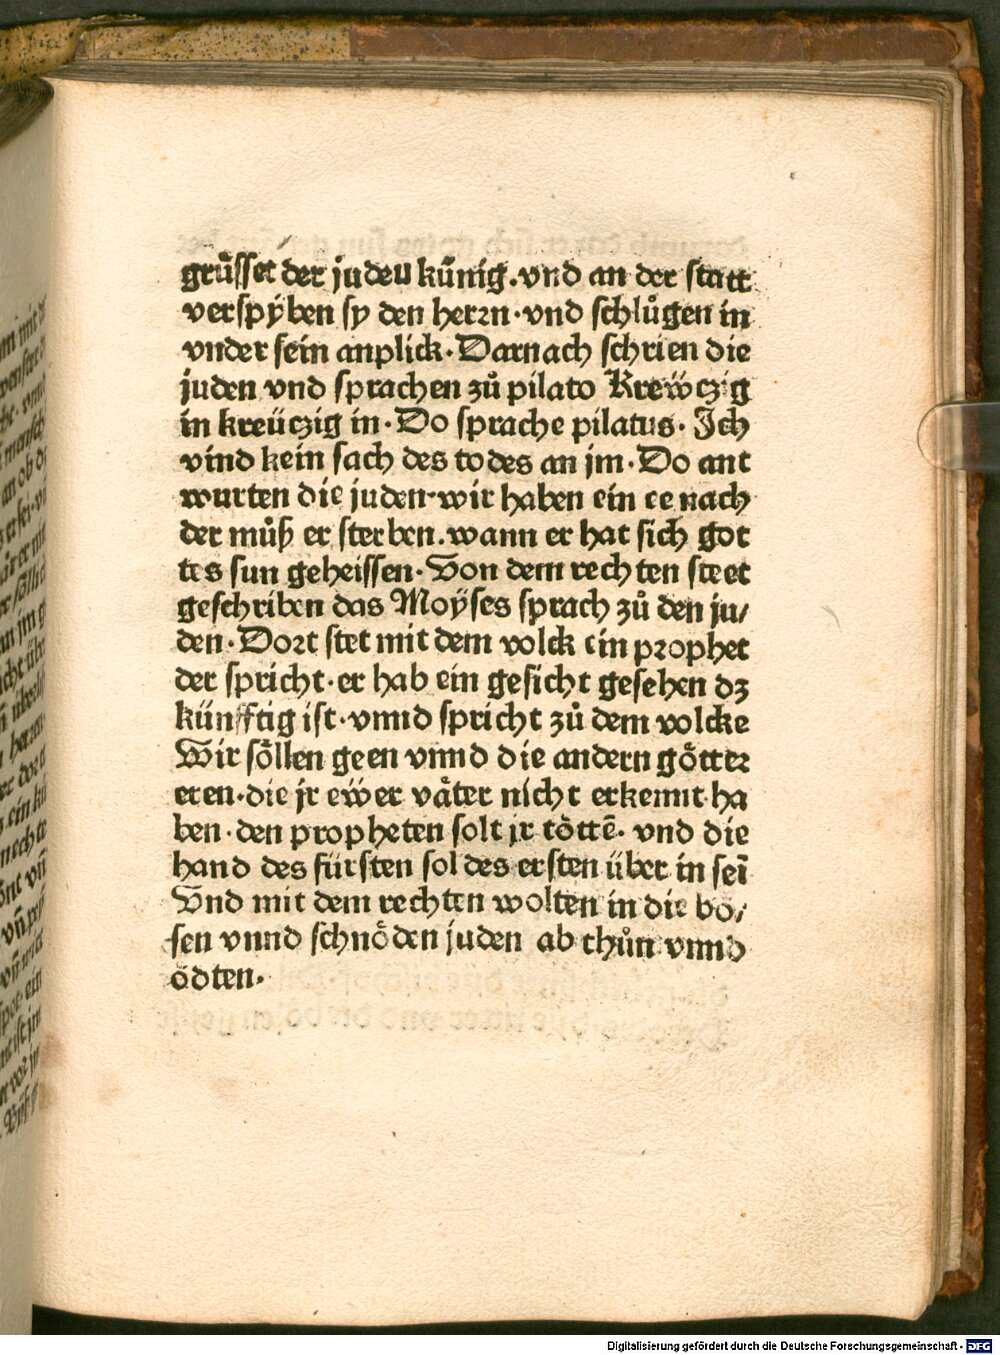 grüsset der juden künig. vnd an der statt
verspÿben sy den herrn. vnd schlůgen in
vnder sein anplick. Darnach schrien die
juden vnd sprachen zů pilato Krewczig
in kreüczig in. Do sprache pilatus. Ich
vind kein sach des todes an jm. Do ant
wurten die juden. wir haben ein ee nach
der můß er sterben. wann er hat sich got
tes sun geheissen. Von dem rechten steet
geschriben das Moÿses sprach zů den ju/
den. Dort stet mit dem volck ein prophet
der spricht. er hab ein gesicht gesehen dz
künfftig ist. vnnd spricht zů dem volcke
Wir söllen geen vnnd die andern götter
eren. die jr eẅer väter nicht erkennt ha
ben. den propheten solt jr töttē. vnd die
hand des fürsten sol des ersten über in seī
Vnd mit dem rechten wolten in die bö/
sen vnnd schnöden juden ab thůn vnnd
ödten.
Digitalisierung gefördert durch die Deutsche Forschungsgemeinschaft - DFG